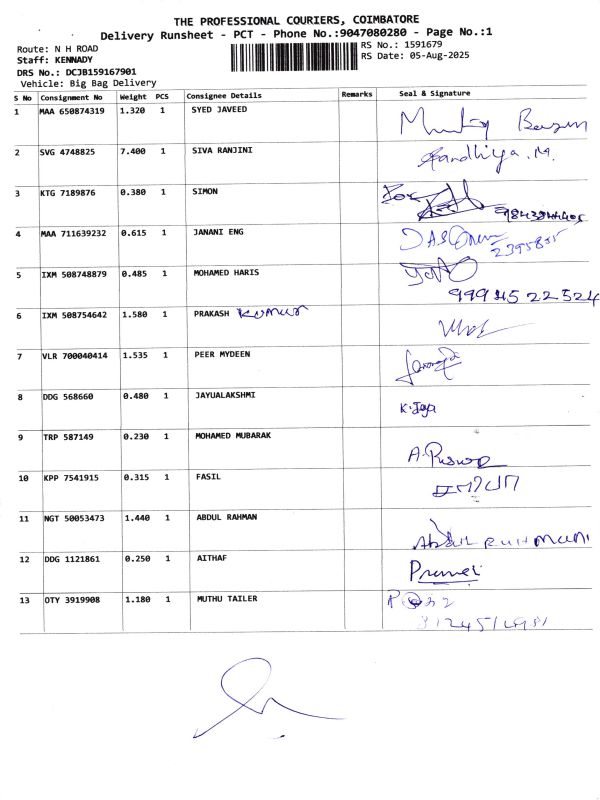 THE PROFESSIONAL COURIERS, COIMBATORE
Delivery Runsheet - PCT - Phone No.:9047080280 - Page No.:1
Route: N H ROAD
RS No.: 1591679
Staff: KENNADY
RS Date: 05-Aug-2025
DRS No.: DCJB159167901
Vehicle: Big Bag Delivery
S No Consignment No Weight PCS Consignee Details Remarks Seal & Signature
1 MAA 650874319 1.320 1 SYED JAVEED
2 SVG 4748825 7.400 1 SIVA RANJINI Sandhiya.M.
3 KTG 7189876 0.380 1 SIMON
4 MAA 711639232 0.615 1 JANANI ENG
2395835
5 IXM 508748879 0.485 1 MOHAMED HARIS
9994522524
6 IXM 508754642 1.580 1 PRAKASH Kumar
7 VLR 700040414 1.535 1 PEER MYDEEN
8 DDG 568660 0.480 1 JAYUALAKSHMI K.Jaya
9 TRP 587149 0.230 1 MOHAMED MUBARAK
10 KPP 7541915 0.315 1 FASIL
11 NGT 50053473 1.440 1 ABDUL RAHMAN
12 DDG 1121861 0.250 1 AITHAF
13 OTY 3919908 1.180 1 MUTHU TAILER